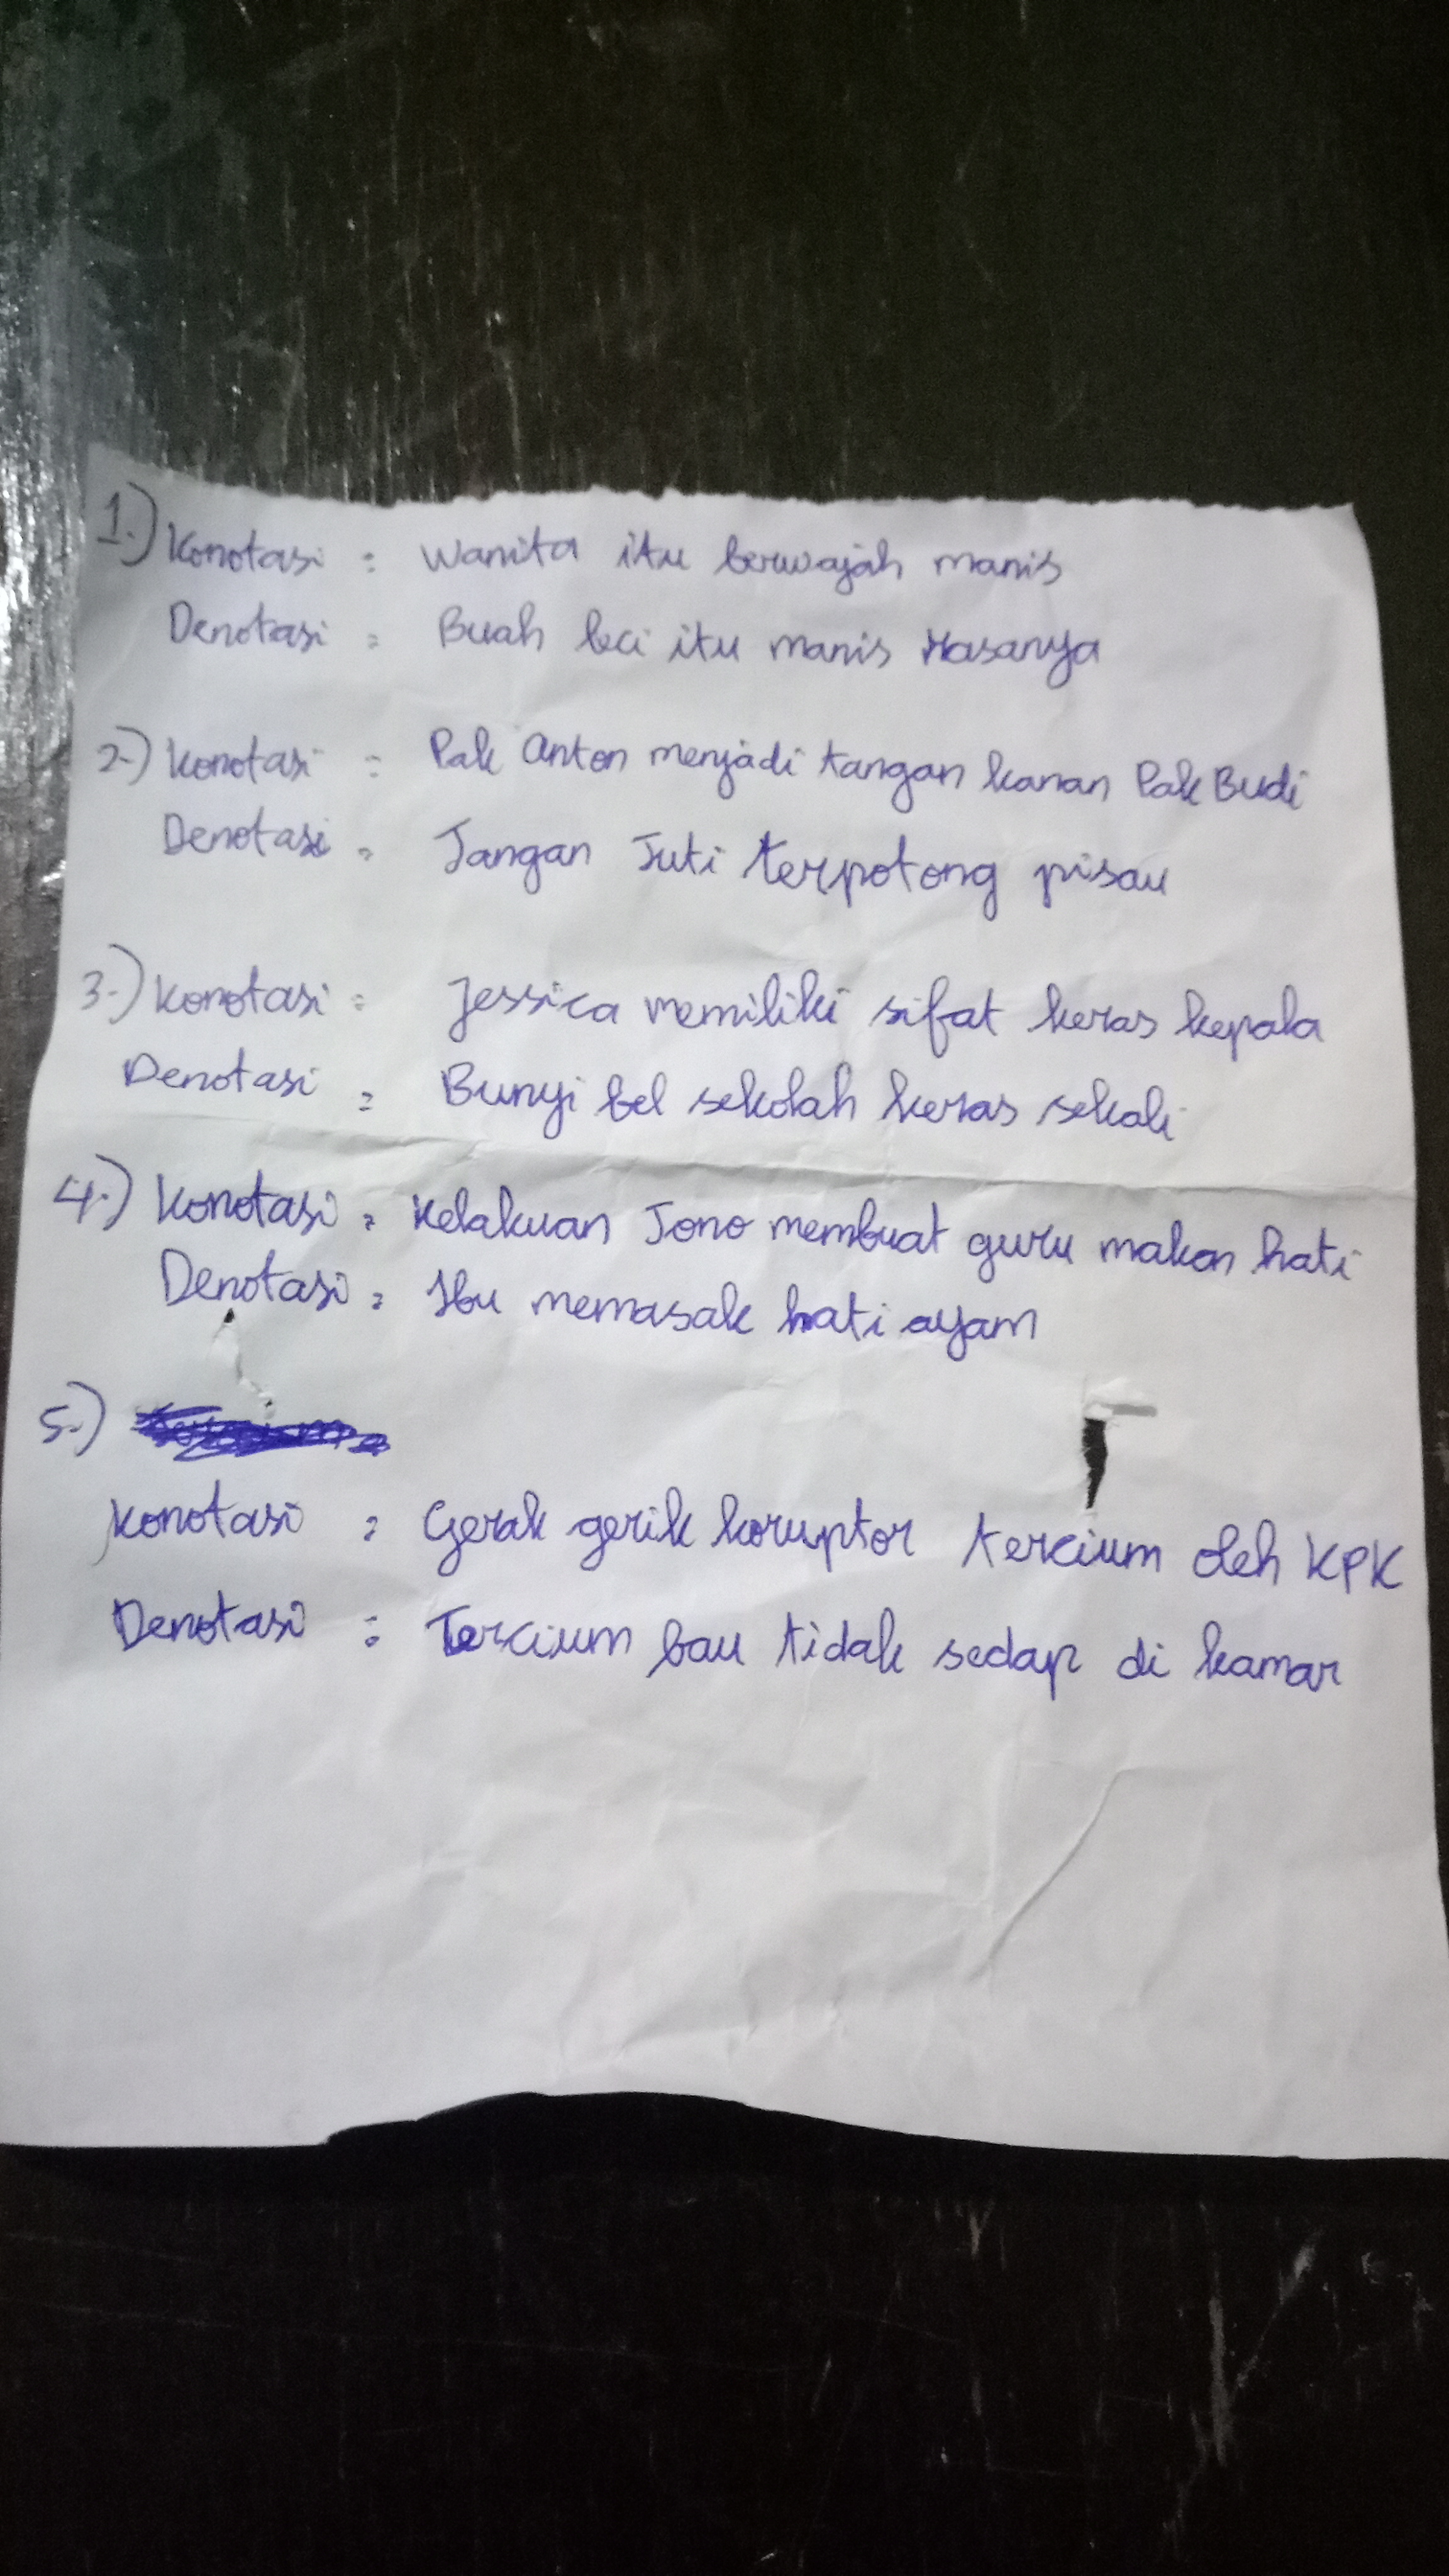 1.) Konotasi : Wanita itu berwajah manis
Denotasi : Buah leci itu manis rasanya
2.) Konotasi : Pak Anton menjadi tangan kanan Pak Budi
Denotasi : Jangan Juti terpotong pisau
3.) Konotasi : Jessica memiliki sifat keras kepala
Denotasi : Bunyi bel sekolah keras sekali
4.) Konotasi : Kelakuan Jono membuat guru makan hati
Denotasi : Ibu memasak hati ayam
5.)
Konotasi : Gerak gerik koruptor tercium oleh KPK
Denotasi : Tercium bau tidak sedap di kamar